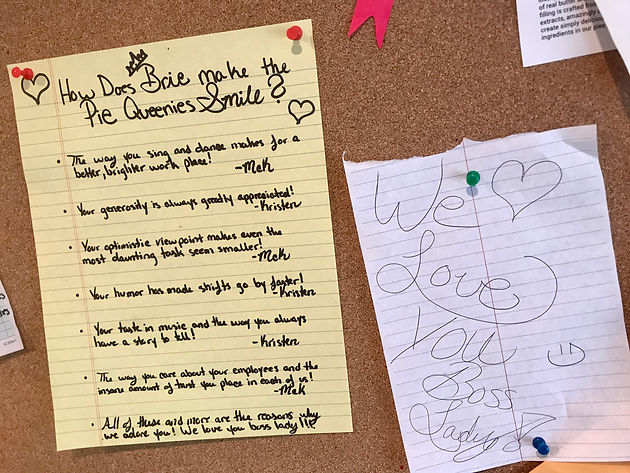 How Does Brie make the
Pie Queenies Smile?
• The way you sing and dance makes for a
better, brighter work place!
-McK
• Your generosity is always greatly appreciated!
-Kristen
• Your optimistic viewpoint makes even the
most daunting task seem smaller!
-McK
• Your humor has made shifts go by faster!
-Kristen
• Your taste in music and the way you always
have a story to tell!
-Kristen
• The way you care about your employees and the
insane amount of trust you place in each of us!
-McK
• All of these and more are the reasons why
we adore you! We love you boss lady!!!
We
Love
You
Boss
Lady
of real butter
filling is crafted from
extracts, amazingly
create simply delicious
ingredients in our pies